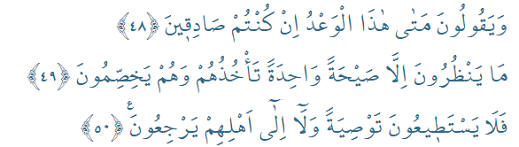 وَيَقُولُونَ مَتٰى هٰذَا الْوَعْدُ اِنْ كُنْتُمْ صَادِقٖينَ ﴿٤٨﴾
مَا يَنْظُرُونَ اِلَّا صَيْحَةً وَاحِدَةً تَأْخُذُهُمْ وَهُمْ يَخِصِّمُونَ ﴿٤٩﴾
فَلَا يَسْتَطٖيعُونَ تَوْصِيَةً وَلَٓا اِلٰٓى اَهْلِهِمْ يَرْجِعُونَࣖ ﴿٥٠﴾